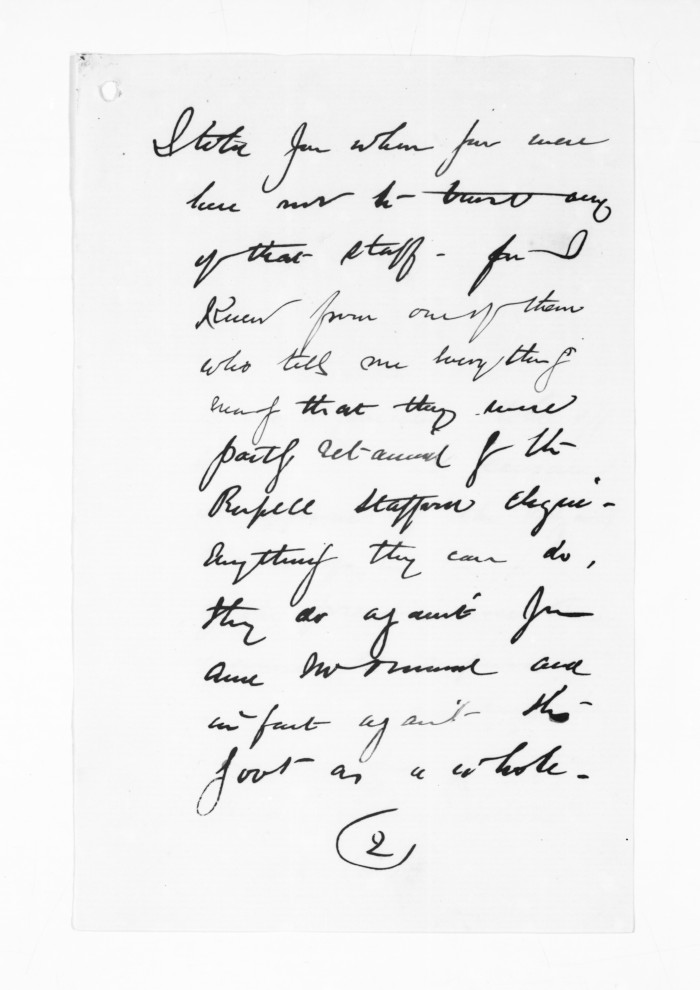 I told you when you were
here not to trust any
of that staff - for I
Knew from one of them
who tells me everything
that they were
partly retained of the
Russell Stafford clique -
Anything they can do,
they do against you
and and
in fact against the
Govt as a whole -
2